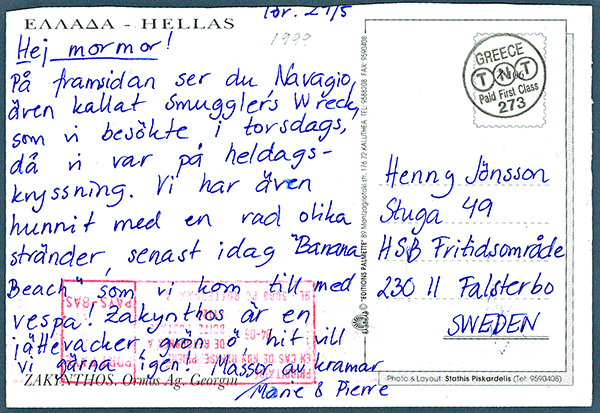 ΕΛΛΑΔΑ - HELLAS
1999
Hej mormor!
På framsidan ser du, Navagio,
även kallat Smugglers Wreck,
som vi besökte i torsdags,
då vi var på heldags-
kryssning. Vi har även
hunnit med en rad olika
stränder, senast idag "Banana
Beach" som vi kom till med
vespa! Zakynthos är en
jättevacker, grön ö, hit vill
vi gärna igen! Massor av kramar
Marie & Pierre
ZAKYNTHOS, Ormos Ag. Georgiu
PAYS-BAS
GREECE
TNT
Paid First Class
273
Henny Jönsson
Stuga 49
HSB Fritidsområde
230 11 Falsterbo
SWEDEN
Photo & Layout: Stathis Piskardelis (Tel: 9590408)